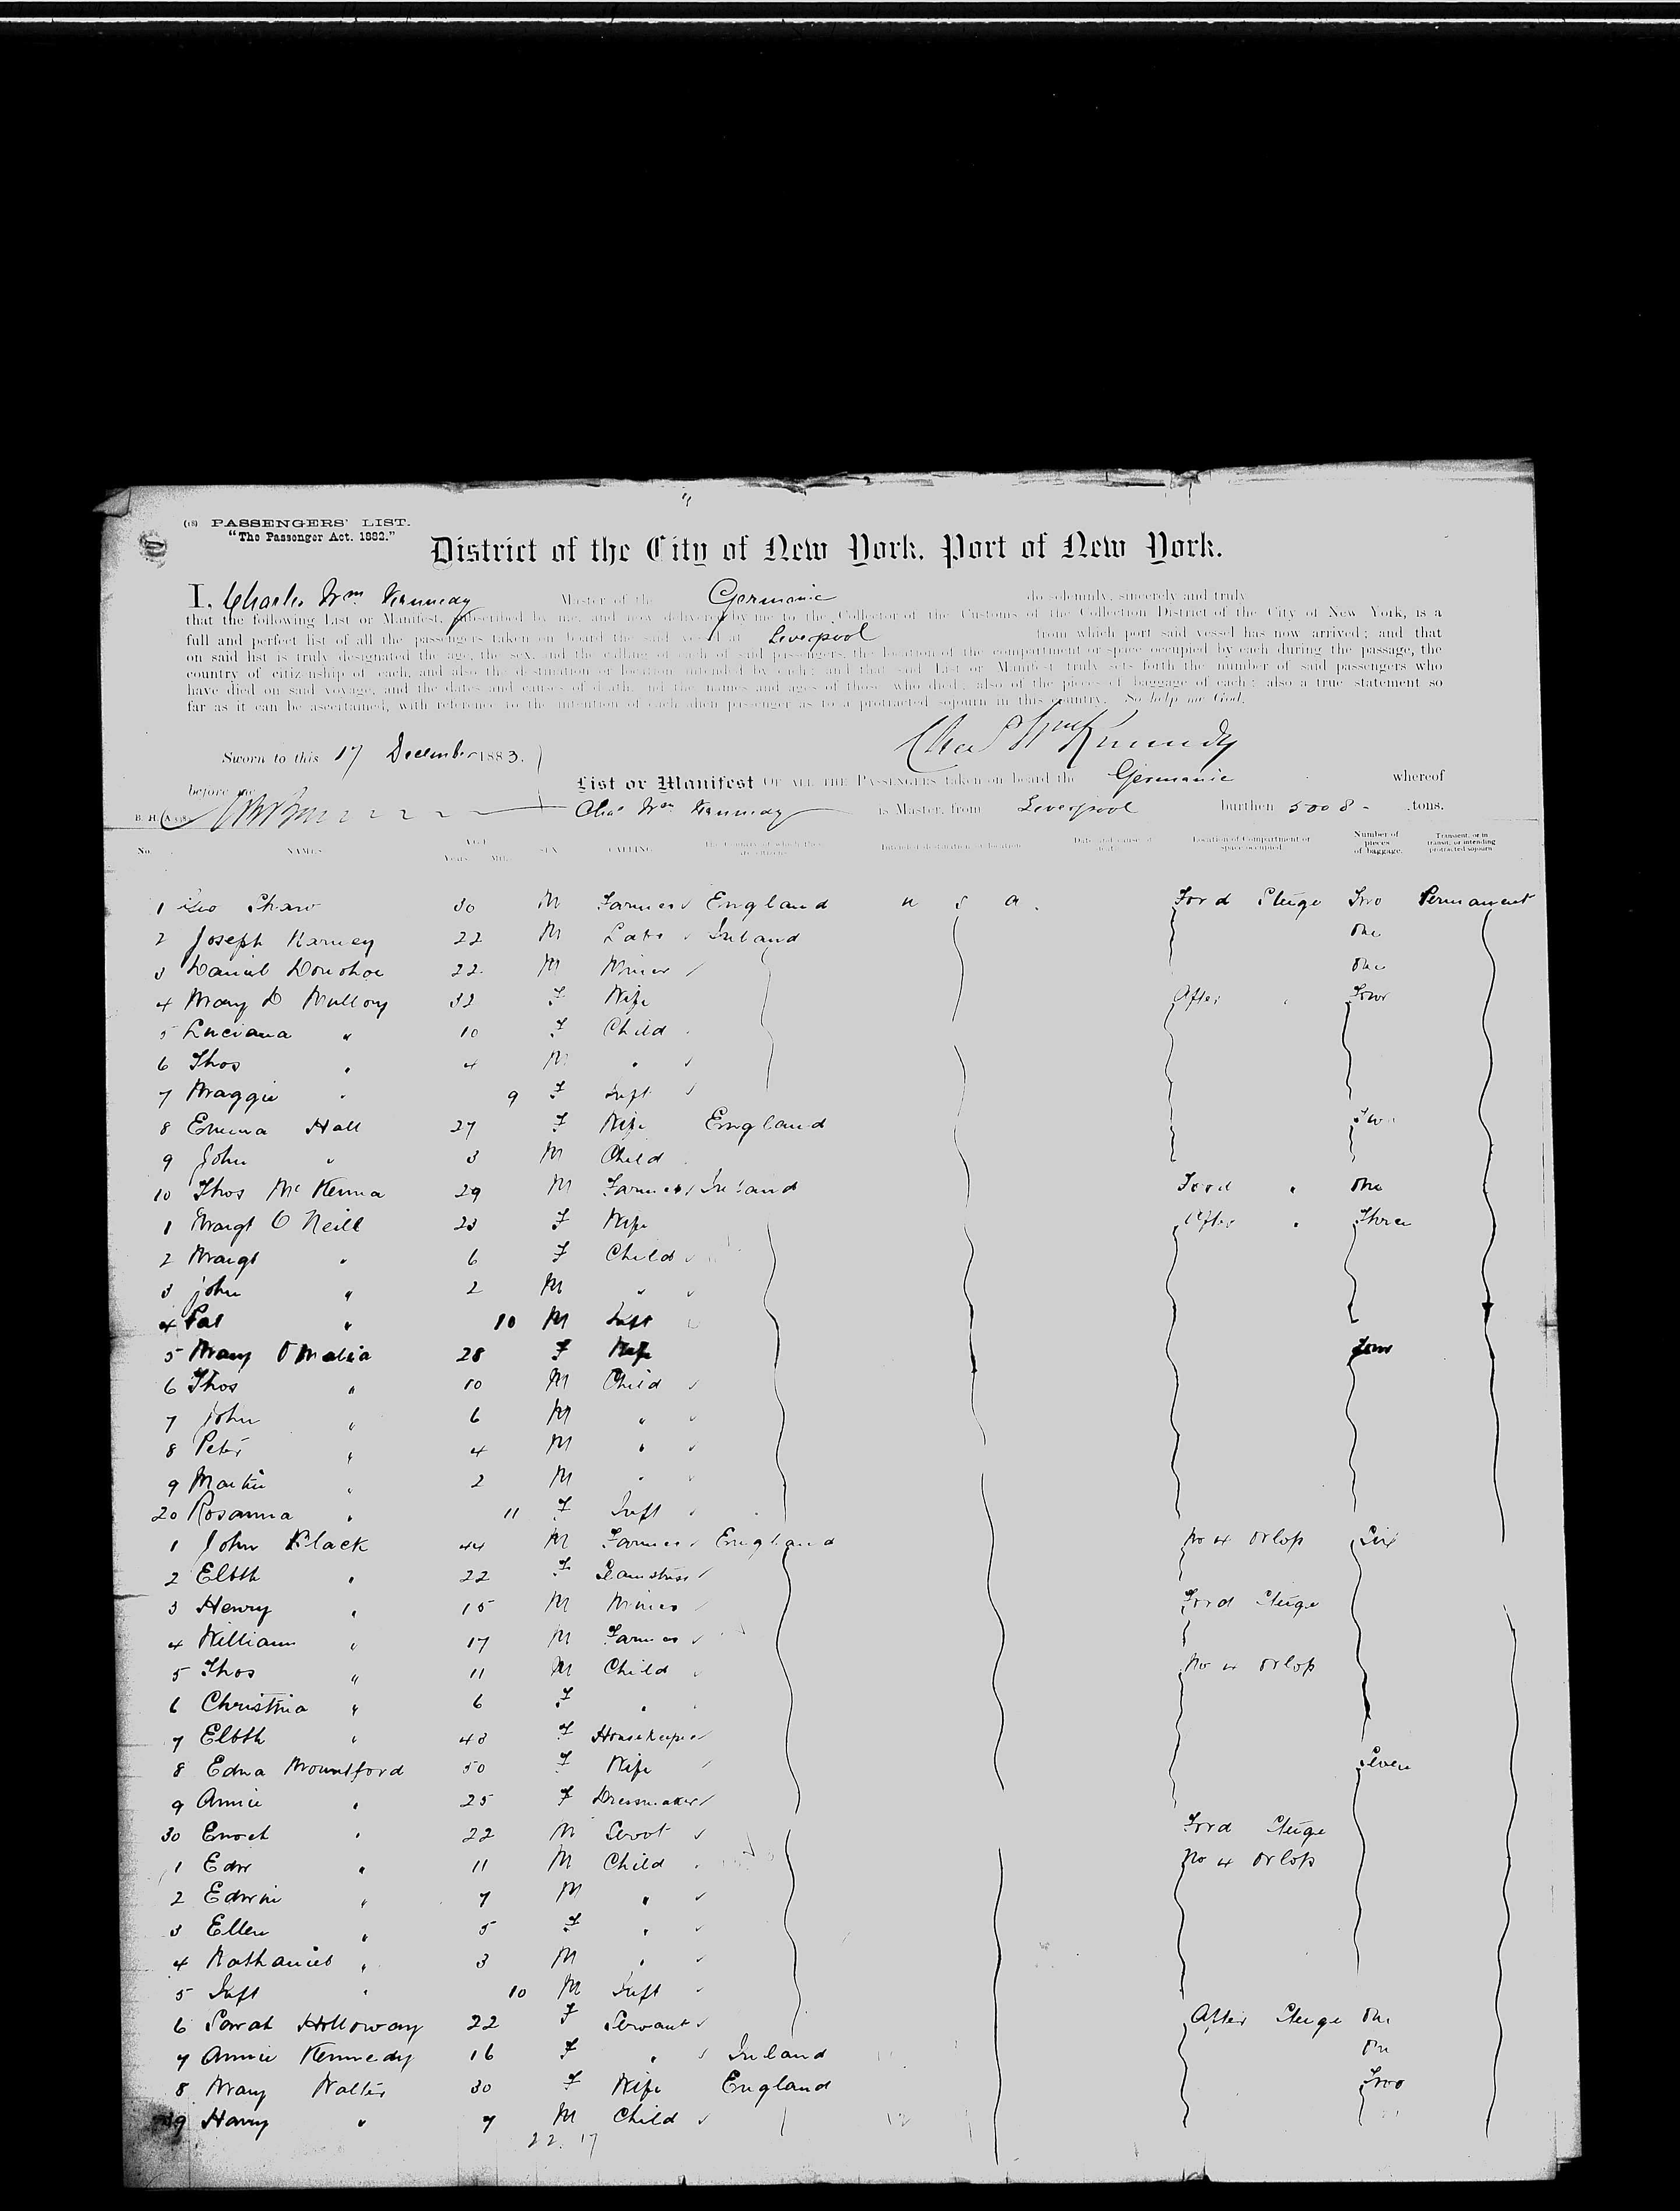 (18) PASSENGERS' LIST.
"The Passenger Act. 1882."
District of the City of New York, Port of New York.
I, Charles Wm Kennedy Master of the Germanic do solemnly, sincerely and truly
that the following List or Manifest, subscribed by me, and now delivered by me to the Collector of the Customs of the Collection District of the City of New York, is a
full and perfect list of all the passengers taken on board the said vessel at Liverpool from which port said vessel has now arrived; and that
on said list is truly designated the age, the sex, and the calling of each of said passengers, the location of the compartment or space occupied by each during the passage, the
country of citizenship of each, and also the destination or location intended by each; and that said List or Manifest truly sets forth the number of said passengers who
have died on said voyage, and the dates and causes of death, and the names and ages of those who died; also of the pieces of baggage of each; also a true statement so
far as it can be ascertained, with reference to the intention of each alien passenger as to a protracted sojourn in this country. So help me God.
Chas Wm Kennedy
Sworn to this 17 December 1883.
before me
List or Manifest OF ALL THE PASSENGERS taken on board the Germanic whereof
Chas Wm Kennedy is Master, from Liverpool burthen 5008 - tons.
No. NAMES AGE Years Mth. SEX CALLING Intended destination or location Location of Compartment or space occupied Number of pieces of baggage. Transient, or in transit, or intending protracted sojourn
1 Geo Shaw 30 M Farmer England U S A. Ford Stuge Two Permanent
2 Joseph Karney 22 M Labr Ireland One
3 Daniel Donohoe 22 M Miner One
4 Mary D Mullory 32 F Wife After " Four
5 Luciana " 10 F Child
6 Thos " 4 M "
7 Maggie " 9 F Inft
8 Emma Hall 27 F Wife England Two
9 John " 3 M Child
10 Thos McKenna 29 M Farmer Ireland Ford " One
1 Margt O Neill 23 F Wife After " Three
2 Margt " 6 F Child
3 John " 2 M "
4 Pat " 10 M Inft
5 Mary OMalia 28 F Wife Four
6 Thos " 10 M Child
7 John " 6 M "
8 Peter " 4 M "
9 Martin " 2 M "
20 Rosanna " 11 F Inft
1 John Black 44 M Farmer England No 4 Orlop Six
2 Elbth " 22 F Seamstress
3 Henry " 15 M Miner Ford Stuge
4 William " 17 M Farmer
5 Thos " 11 M Child No 4 Orlop
6 Christina " 6 F "
7 Elbth " 43 F Housekeeper
8 Edna Mountford 50 F Wife Seven
9 Annie " 25 F Dressmaker
30 Enoch " 22 M Servt Ford Stuge
1 Edw " 11 M Child No 4 Orlop
2 Edwin " 7 M "
3 Ellen " 5 F "
4 Nathaniel " 3 M "
5 Inft " 10 M Inft
6 Sarah Holloway 22 F Servant After Stuge One
7 Annie Kennedy 16 F " Ireland One
8 Mary Walter 30 F Wife England Two
39 Harry " 7 M Child
22. 17